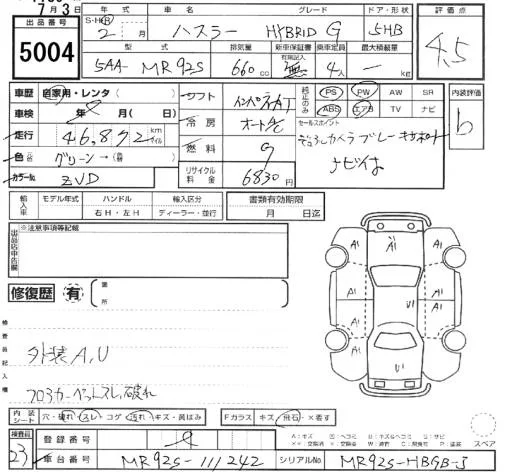 7月3日
出品番号
5004
年式 車名 グレード ドア・形状
S・H・R
2 月 ハスラー HYBRID G 5HB
評価点
4.5
型式 排気量 新車保証書 乗車定員 最大積載量
有限記入
5AA-MR92S 660 cc 無 4人 ― kg
車歴 自家用・レンタ( )
シフト インパネAT
純正のみ
PS PW AW SR
ABS エアB TV ナビ
内装評価
b
車検 年 月( )
冷房 オートA/C
セールスポイント
デュアルカメラブレーキサポート
ナビ付
走行 46,892 km マイル
色 グリーン→
燃料 G
カラーNo. ZVD
リサイクル料金 6830円
輸入車 モデル年式 ハンドル 輸入区分 書類有効期限
右H・左H ディーラー・並行 月 日迄
出品店申告欄
※注意事項等記載
修復歴 有
箇所
検査員記入欄
外装A,U
フロアカーペットスレ、破れ
A1 A1 A1
A1 A1
A1 U1
U1
内装シート 穴・破れ・スレ・コゲ・汚れ・キズ・黄ばみ
Fガラス キズ・飛石・×要す
スペア
検査員
23
登録番号
車台番号 MR92S-111242 シリアルNo. MR92S-HBGB-J